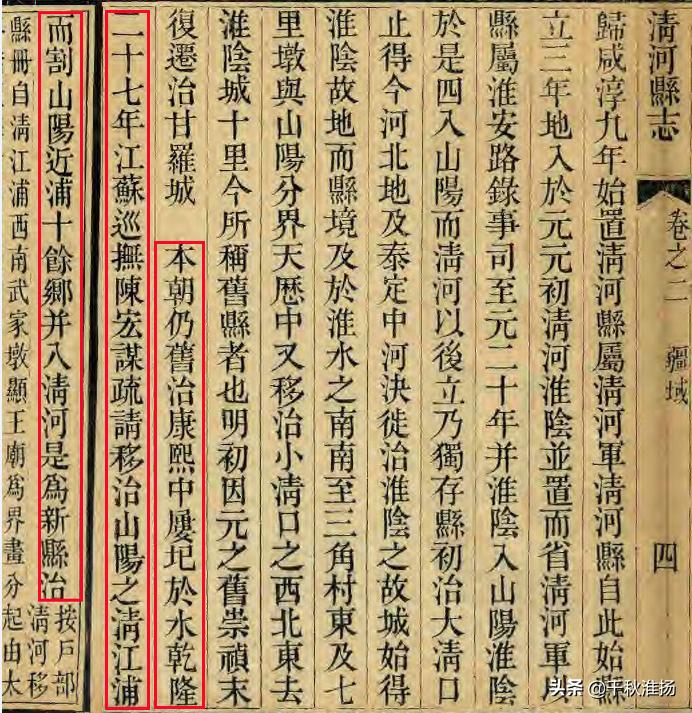 清河縣志
卷之二 疆域 四
歸咸淳九年始置清河縣屬清河軍清河縣自此始縣
立三年地入於元元初清河淮陰並置而省清河軍以
縣屬淮安路錄事司至元二十年并淮陰入山陽淮陰
於是四入山陽而清河以後立乃獨存縣初治大清口
止得今河北地及泰定中河決徙治淮陰之故城始得
淮陰故地而縣境及於淮水之南南至三角村東及七
里墩與山陽分界天歷中又移治小清口之西北東去
淮陰城十里今所稱舊縣者也明初因元之舊崇禎末
復遷治甘羅城 本朝仍舊治康熙中屢圮於水乾隆
二十七年江蘇巡撫陳宏謀疏請移治山陽之清江浦
而割山陽近浦十餘鄉并入清河是為新縣治 按戶部
清河移
縣冊自清江浦西南武家墩顯王廟為界畫分起由太
头条 @千秋淮扬